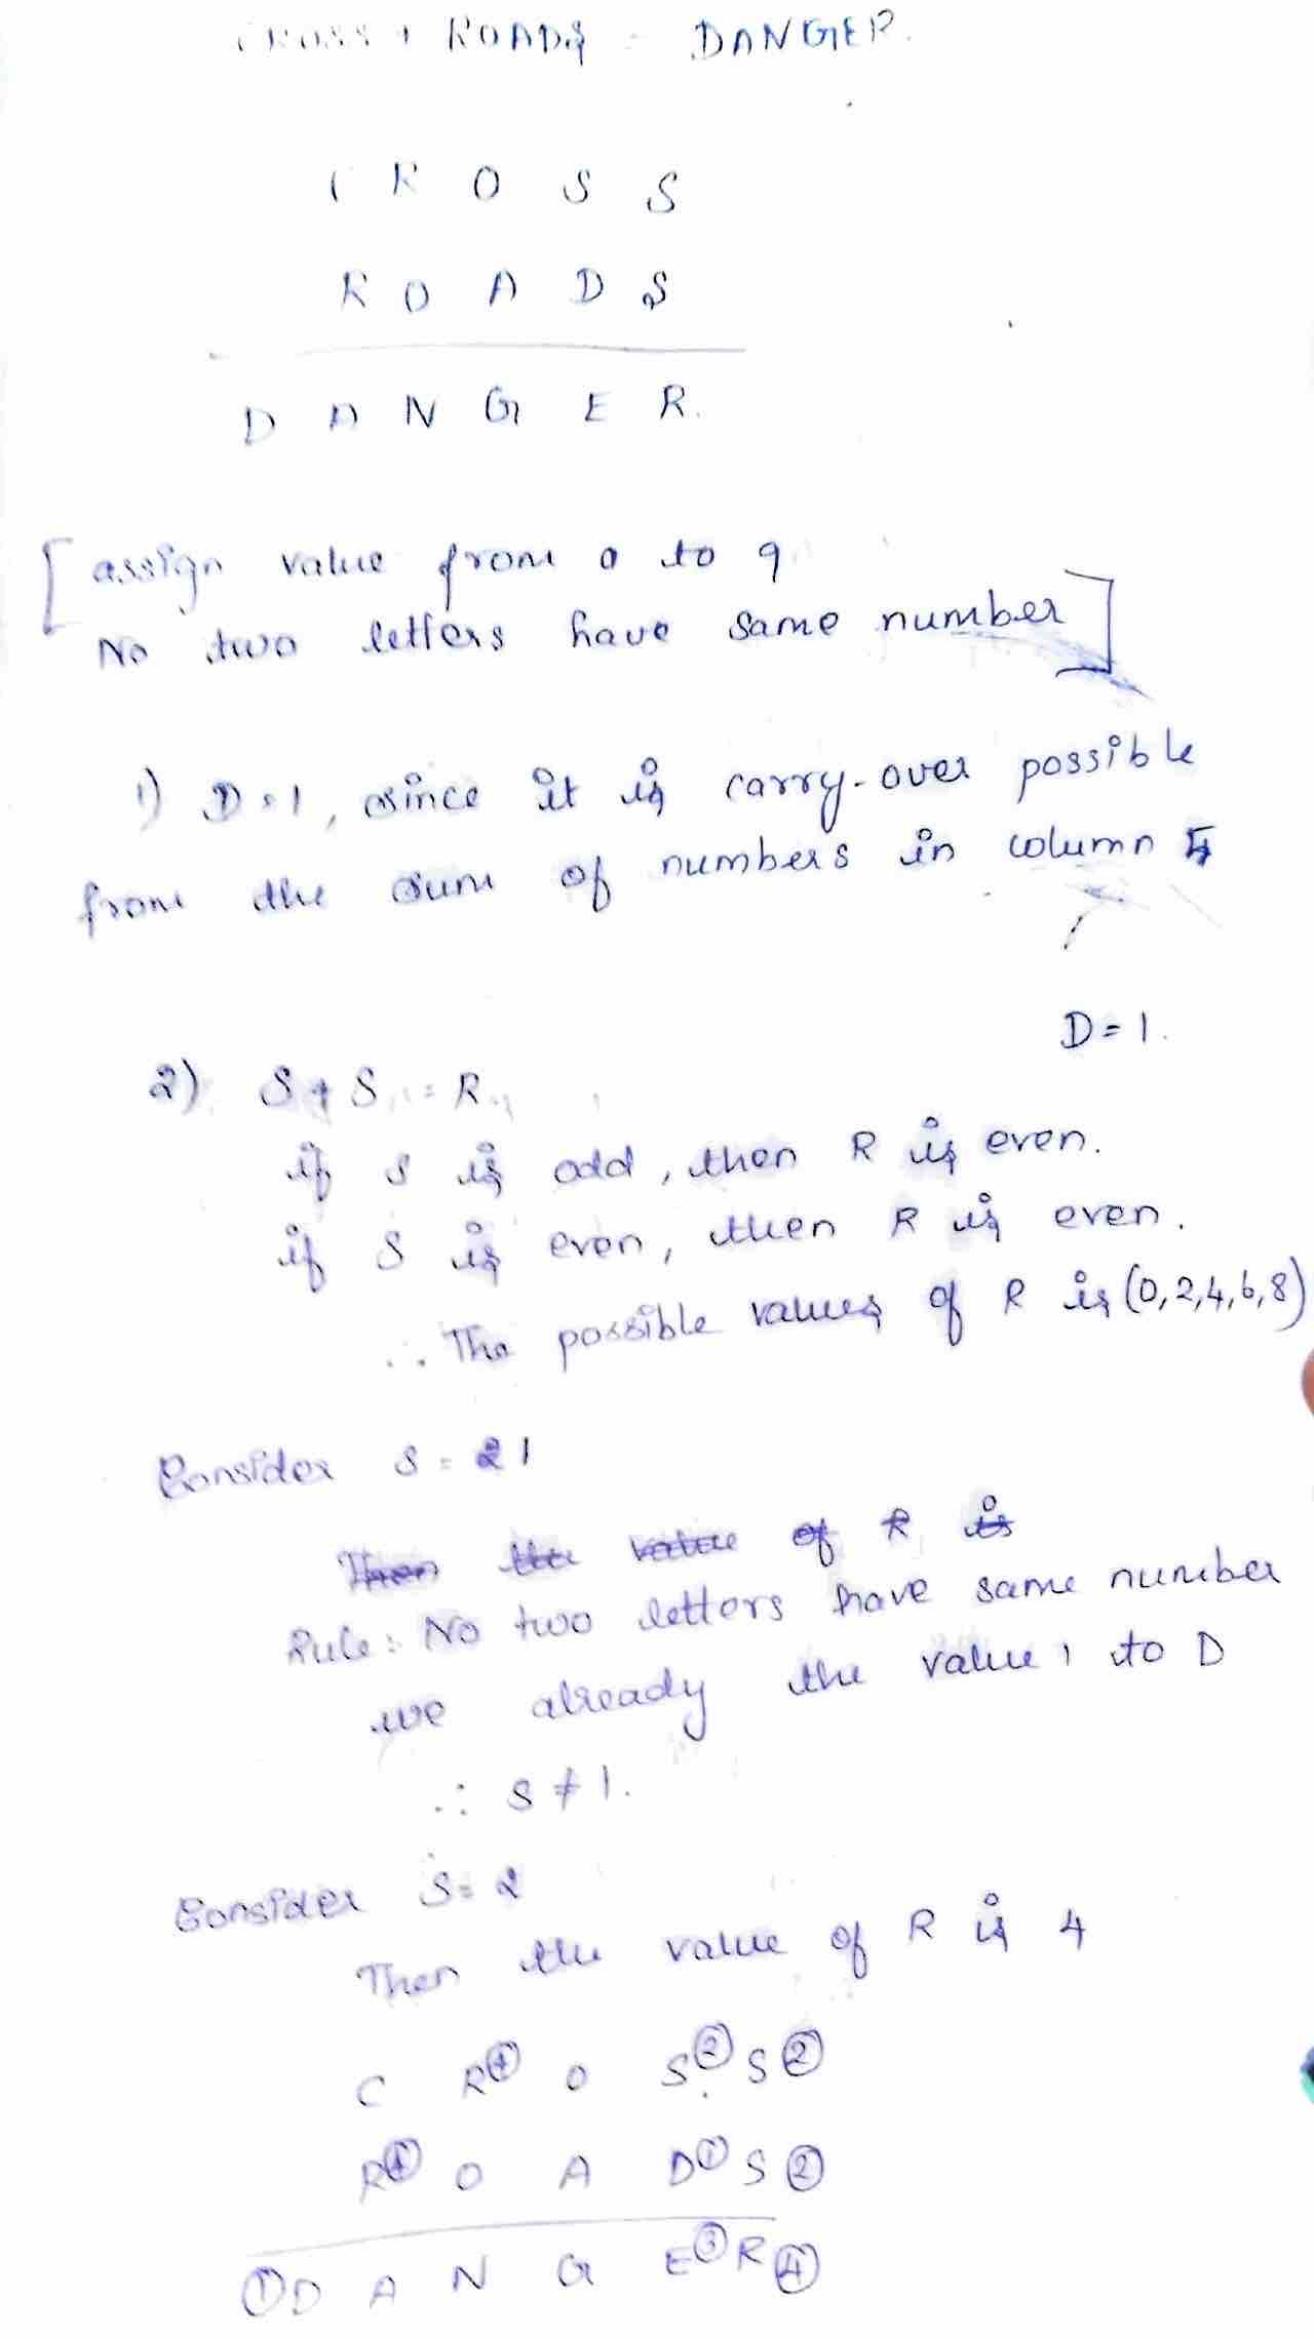 CROSS + ROADS = DANGER.
C R O S S
R O A D S
D A N G E R.
[assign value from 0 to 9
No two letters have same number]
1) D=1, since it is carry-over possible
from the sum of numbers in column 5
D=1.
2) S+S = R
if S is odd, then R is even.
if S is even, then R is even.
∴ The possible values of R is (0,2,4,6,8)
Consider S = 1
Then the value of R is
Rule: No two letters have same number
we already the value 1 to D
∴ S ≠ 1.
Consider S = 2
Then the value of R is 4
C R④ O S② S②
R④ O A D① S②
①D A N G E③ R④